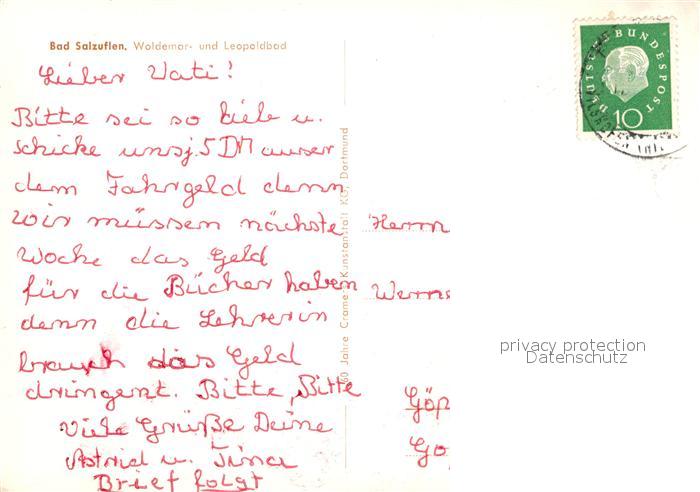 Bad Salzuflen, Woldemar- und Leopoldbad
Lieber Vati!
Bitte sei so lieb u.
schicke uns j. 5 DM auser
dem Fahrgeld denn
wir müssen nächste
Woche das Geld
für die Bücher haben
denn die Lehrerin
brauch das Geld
dringent. Bitte, Bitte
Viele Grüße Deine
Astrid u. Tina
Brief folgt
60 Jahre Cramers Kunstanstalt KG, Dortmund
DEUTSCHE BUNDESPOST
10
Herrn
Werne
Göp
Go
privacy protection
Datenschutz